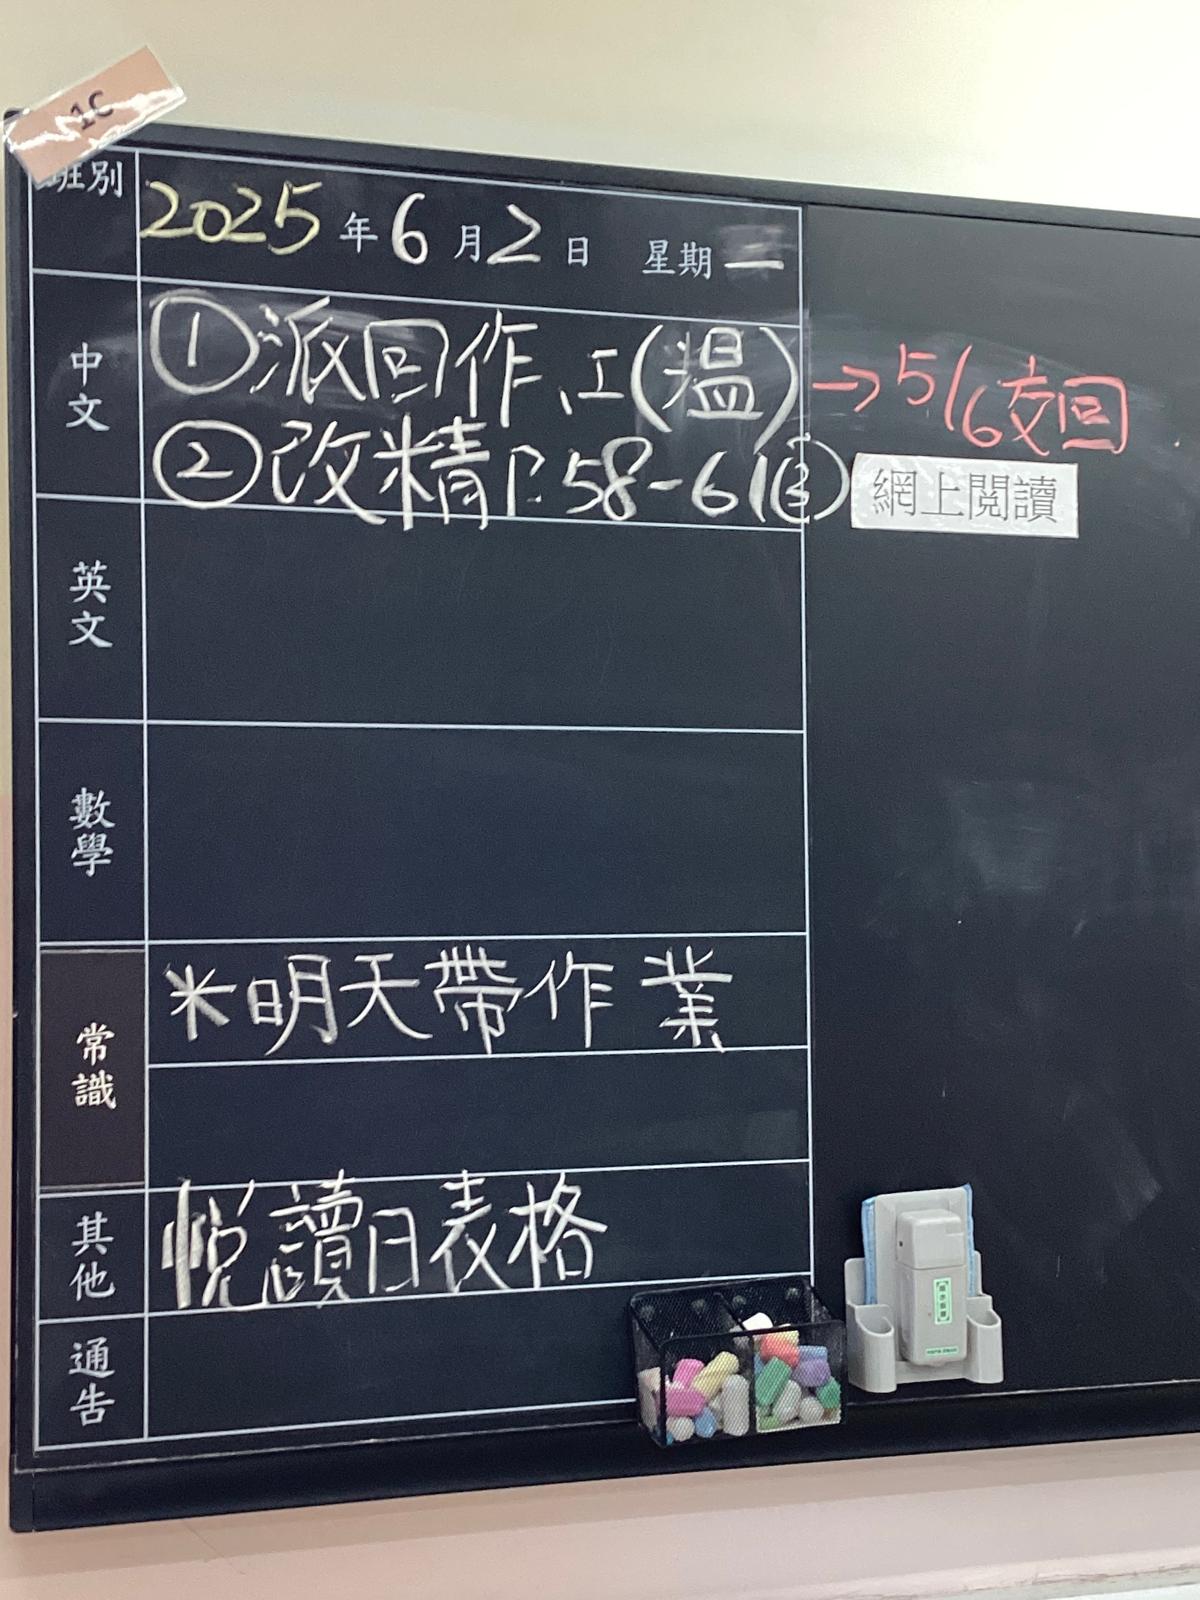 1C
班別
2025年6月2日 星期一
中文
①派回作工(溫)→5/6交回
②改精P.58-61
網上閱讀
英文
數學
常識
※明天帶作業
其他
悅讀日表格
通告